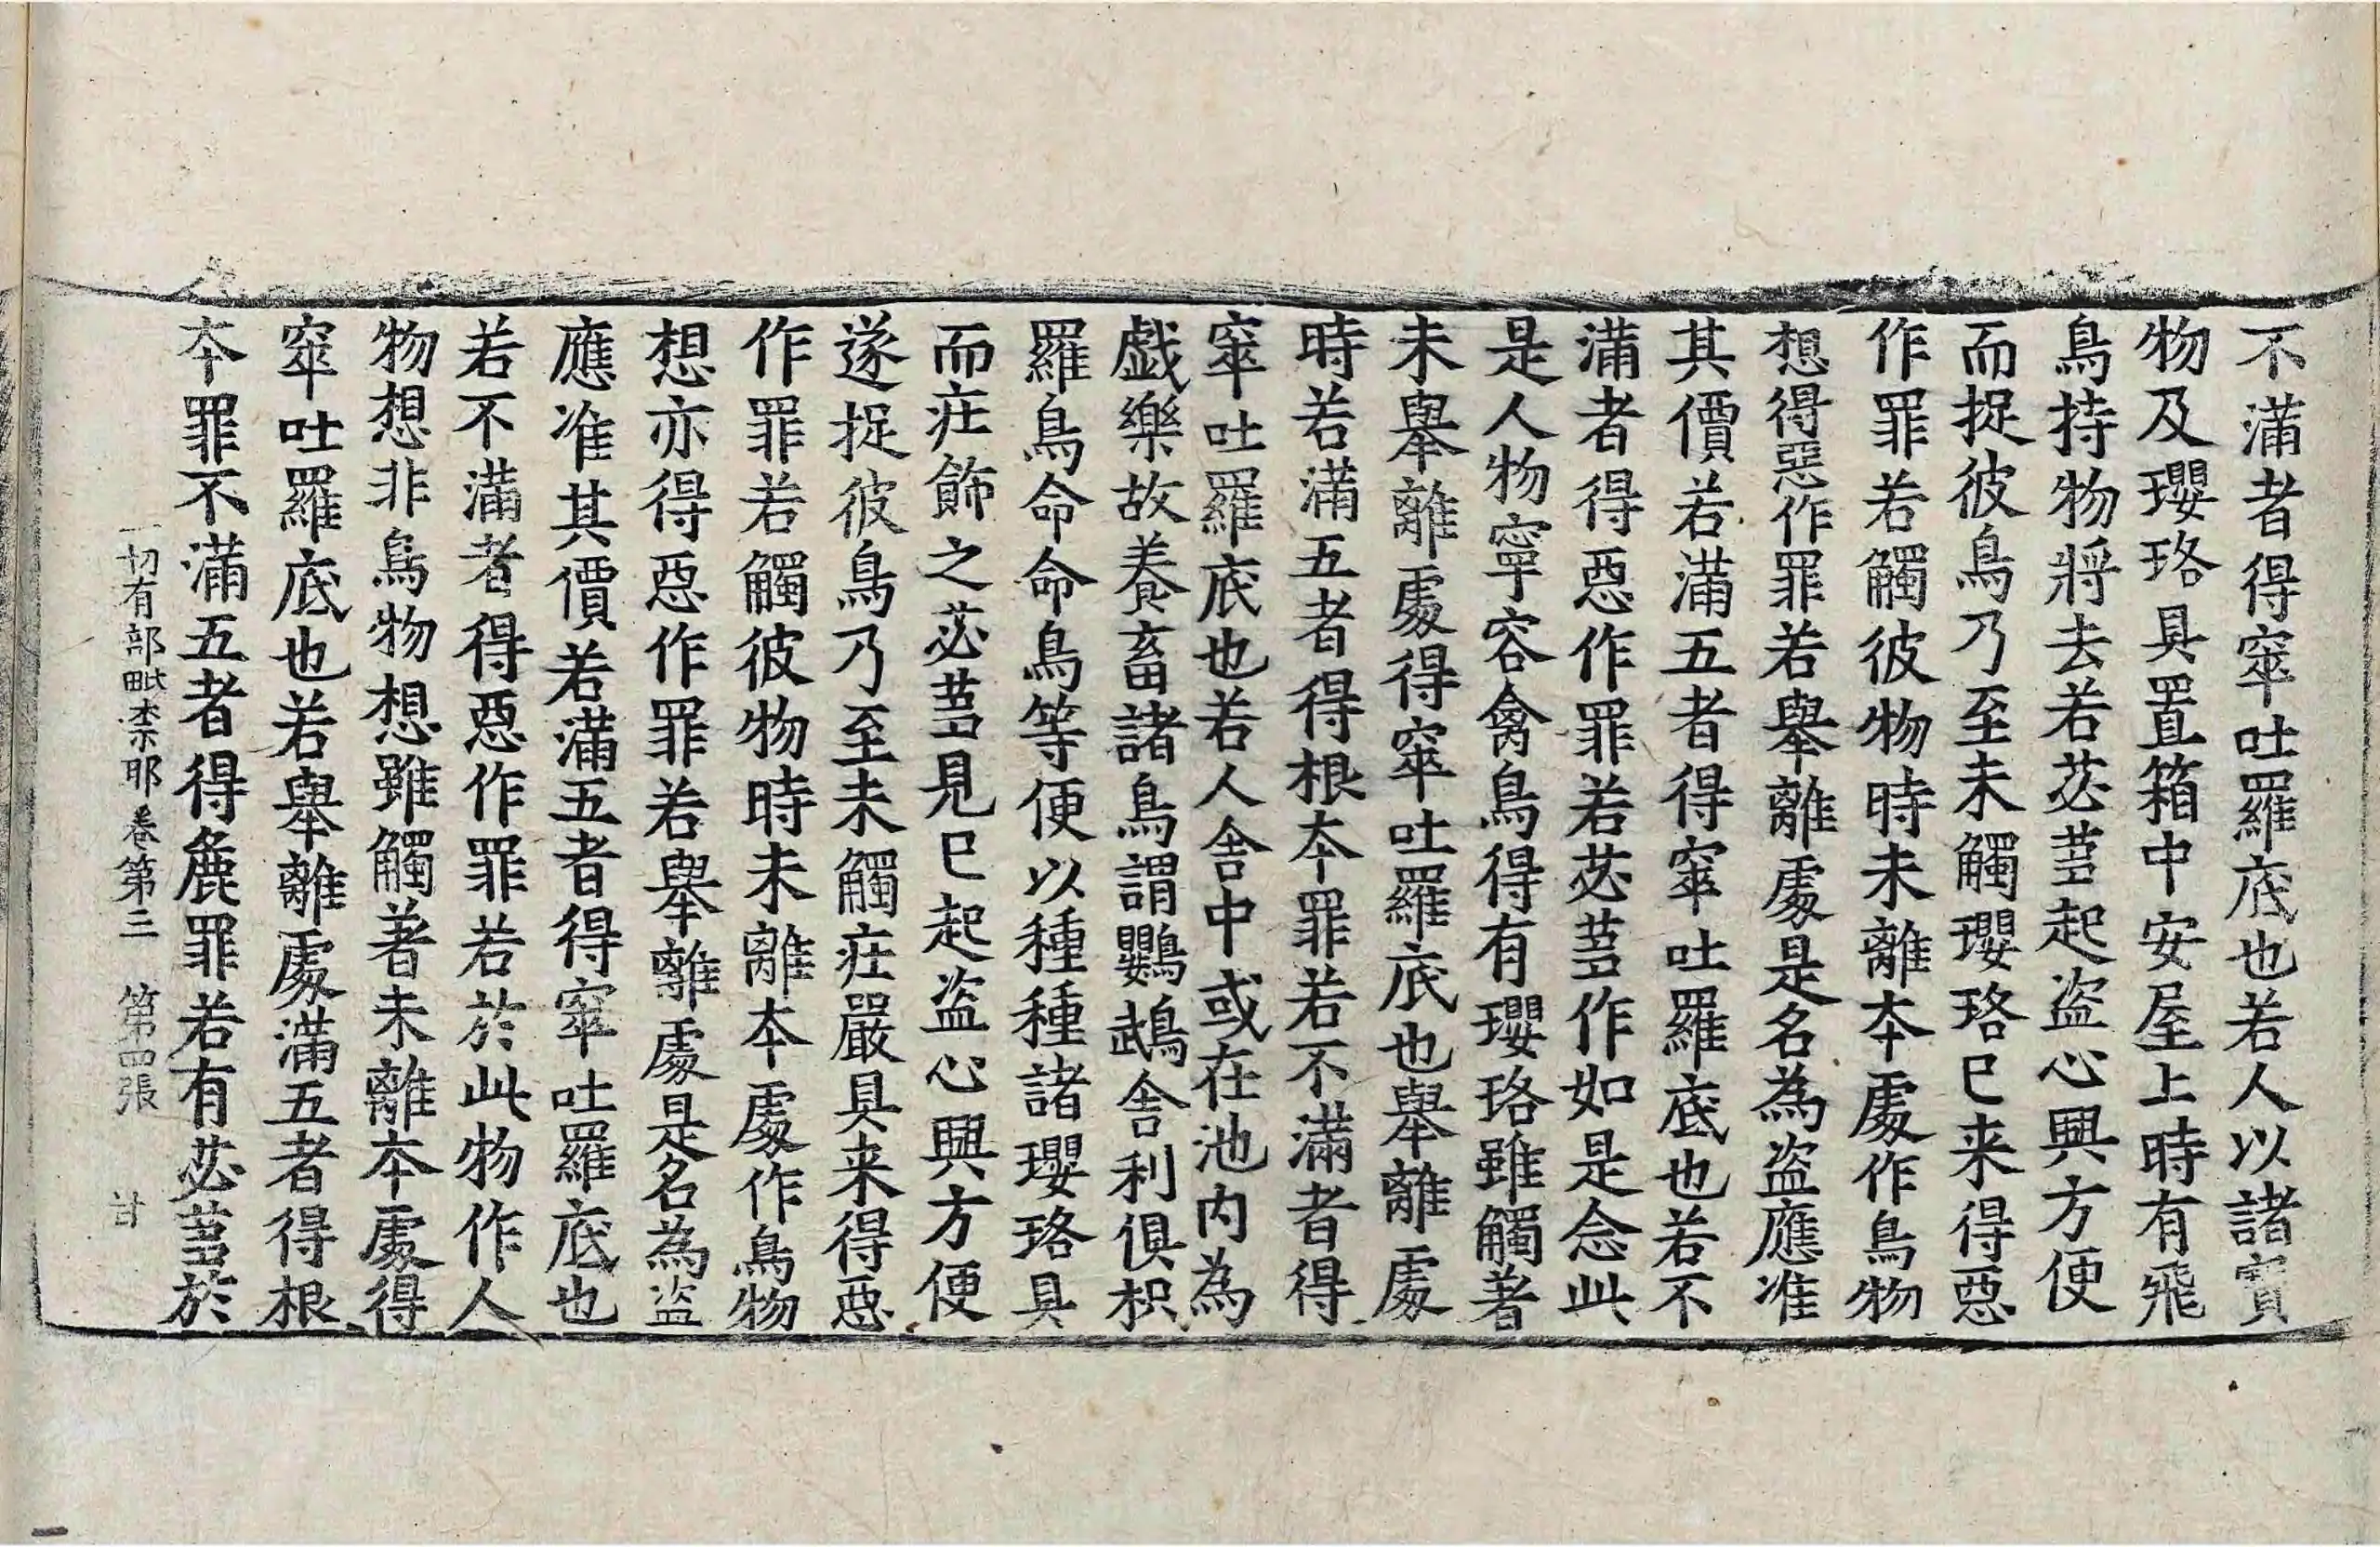 不滿者得窣吐羅底也若人以諸寶
物及瓔珞具置箱中安屋上時有飛
鳥持物將去若苾芻起盜心興方便
而捉彼鳥乃至未觸瓔珞已来得惡
作罪若觸彼物時未離本處作鳥物
想得惡作罪若舉離處是名為盜應准
其價若滿五者得窣吐羅底也若不
滿者得惡作罪若苾芻作如是念此
是人物寧容禽鳥得有瓔珞雖觸著
未舉離處得窣吐羅底也舉離處
時若滿五者得根本罪若不滿者得
窣吐羅底也若人舍中或在池内為
戲樂故養畜諸鳥謂鸚鵡舍利俱枳
羅鳥命命鳥等便以種種諸瓔珞具
而疘飾之苾芻見已起盜心興方便
遂捉彼鳥乃至未觸疘嚴具来得惡
作罪若觸彼物時未離本處作鳥物
想亦得惡作罪若舉離處是名為盜
應准其價若滿五者得窣吐羅底也
若不滿者得惡作罪若於此物作人
物想非鳥物想雖觸著未離本處得
窣吐羅底也若舉離處滿五者得根
本罪不滿五者得麁罪若有苾芻於
一切有部毗柰耶卷第三　第四張　甘